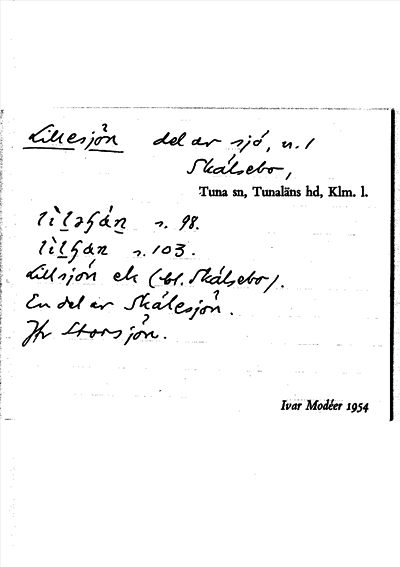 Lillesjön del av sjö, n. 1
Skálsebo,
Tuna sn, Tunaläns hd, Klm. l.
s. 98.
s. 103.
Lillsjön ek (bl. Skálsebo).
En del av Skálesjön.
Jfr Storsjön.
Ivar Modéer 1954